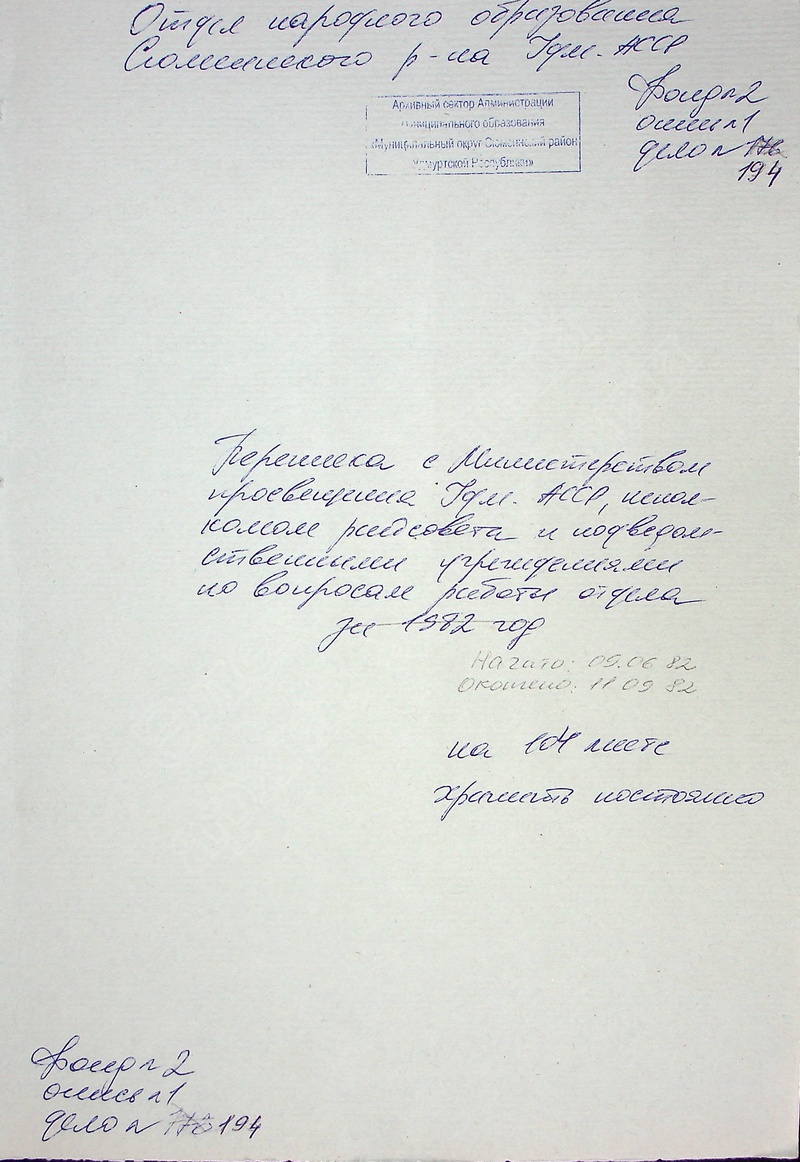 Отдел народного образования
Сюмсинского р-на Удм. АССР
Архивный сектор Администрации
муниципального образования
«Муниципальный округ Сюмсинский район
Удмуртской Республики»
Фонд № 2
опись № 1
дело №
194
Переписка с Министерством
просвещения Удм. АССР, испол-
комом райсовета и подведом-
ственными учреждениями
по вопросам работы отдела
за 1982 год
Начато: 09.06 82
Окончено: 11 09 82
на 104 листе
хранить постоянно
Фонд № 2
опись № 1
дело № 194